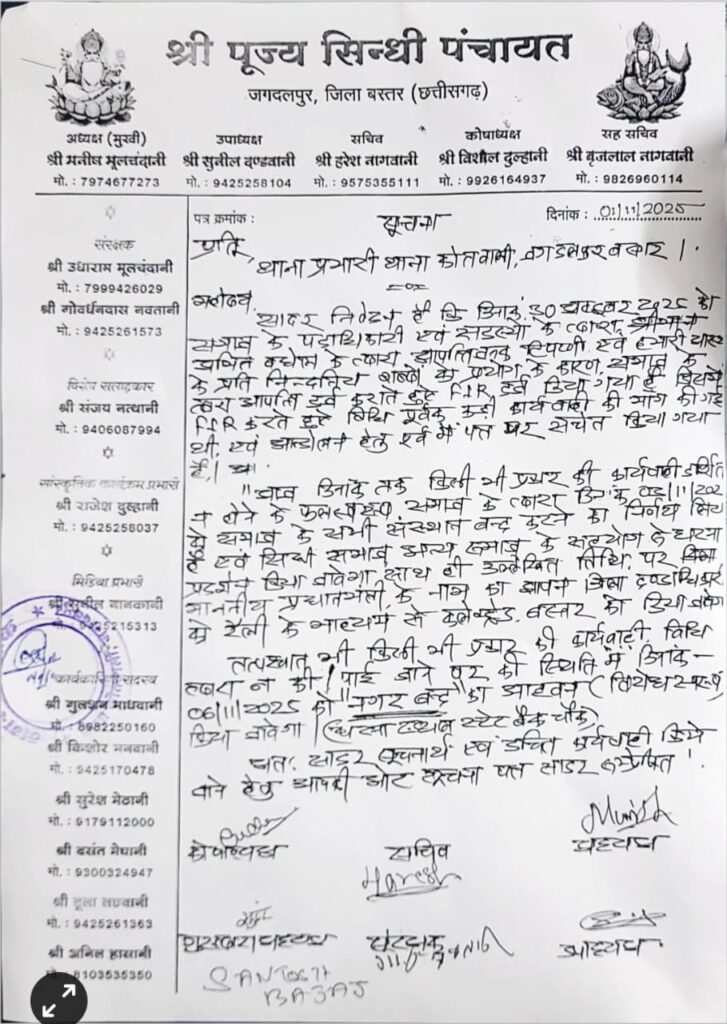 श्री पूज्य सिन्धी पंचायत
जगदलपुर, जिला बस्तर (छत्तीसगढ़)
अध्यक्ष (मुखी)
श्री मनीष मूलचंदानी
मो. : 7974677273
उपाध्यक्ष
श्री सुनील दण्डवानी
मो. : 9425258104
सचिव
श्री हरेश नागवानी
मो. : 9575355111
कोषाध्यक्ष
श्री विशाल दुल्हानी
मो. : 9926164937
सह सचिव
श्री बृजलाल नागवानी
मो. : 9826960114
संरक्षक
श्री उधाराम मूलचंदानी
मो. : 7999426029
श्री गोवर्धनदास नवतानी
मो. : 9425261573
विशेष सलाहकार
श्री संजय नत्थानी
मो. : 9406087994
सांस्कृतिक कार्यक्रम प्रभारी
श्री राजेश दुल्हानी
मो. : 9425258037
मिडिया प्रभारी
श्री सुनील
5215313
कार्यकारिणी सदस्य
श्री गुलशन माधवानी
8982250160
श्री किशोर मनवानी
मो. : 9425170478
श्री सुरेश मेठानी
मो. : 9179112000
श्री बसंत मेघानी
मो. : 9300324947
श्री दूला लछवानी
मो. : 9425261363
श्री अनिल हासानी
8103535350
पत्र क्रमांक :
दिनांक : 01/11/2025
सूचना
प्रति,
थाना प्रभारी थाना कोतवाली,
महोदय,
सादर निवेदन है कि दिनांक 30 अक्टूबर 2025 को
समाज के पदाधिकारी एवं सदस्यों के द्वारा
के द्वारा आपत्तिजनक टिप्पणी एवं हमारी
के प्रति शब्दों का प्रयोग के कारण, समाज के
द्वारा आपत्ति दर्ज कराते हुये FIR दर्ज किया गया है
FIR करते हुये विधि पूर्वक कड़ी कार्यवाही की मांग की गई
थी, एवं आन्दोलन हेतु पूर्व में पत्र पर सचेत किया गया
है।
आज दिनांक तक किसी भी प्रकार की कार्यवाही
न होने के फलस्वरूप समाज के द्वारा दिनांक
समाज के सभी संस्थान बन्द करने का निर्णय लिया
है एवं सिंधी समाज अन्य समाज के सहयोग से धरना
प्रदर्शन किया जावेगा साथ ही उल्लेखित तिथि पर
माननीय प्रधानमंत्री के नाम का ज्ञापन जिला दण्डाधिकारी
को रैली के माध्यम से कलेक्ट्रेट बस्तर को दिया जावेगा
तत्पश्चात भी किसी भी प्रकार की कार्यवाही विधि
न की पाई जाने पर की स्थिति में दिनांक-
06/11/2025 को "नगर बन्द" का आहवान
किया जावेगा स्टेट बैंक चौक)
अतः सादर सूचनार्थ एवं उचित कार्यवाही किये
जाने हेतु आपकी ओर सूचना पत्र सादर सम्प्रेषित।
कोषाध्यक्ष
सचिव
Haresh
Munish
अध्यक्ष
संरक्षक
SANTOSH
BAJAJ